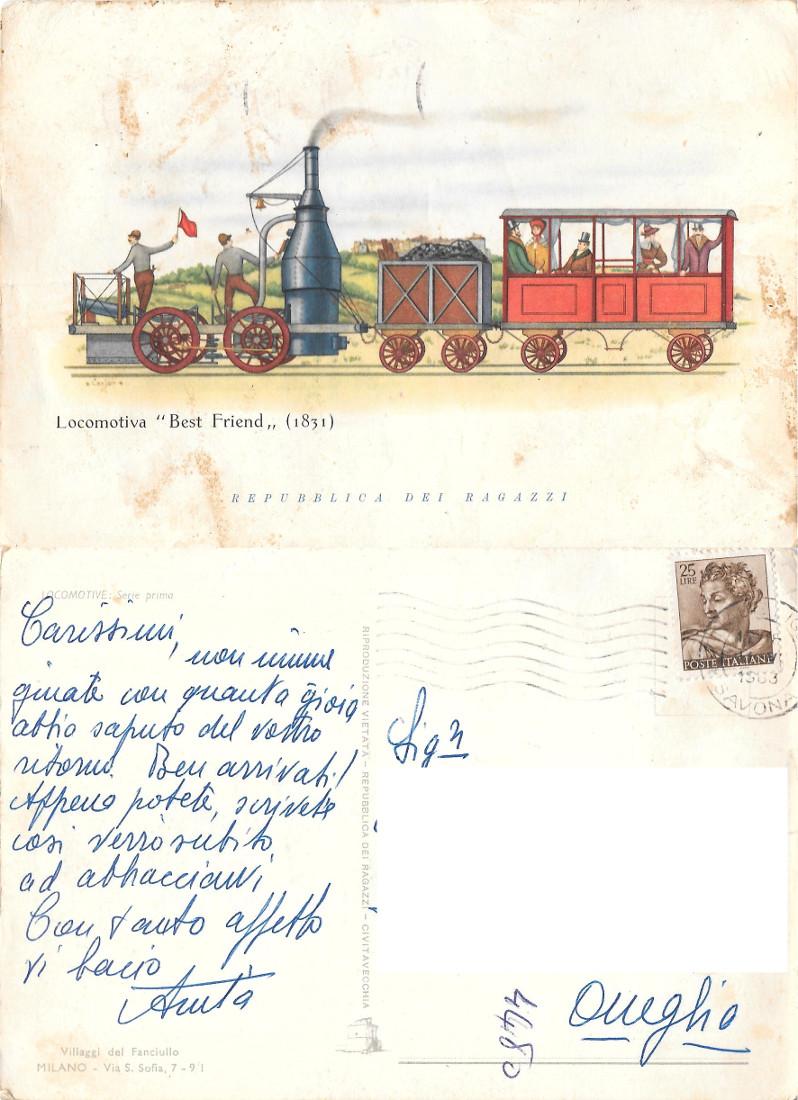 Locomotiva "Best Friend„ (1831)
REPUBBLICA DEI RAGAZZI
LOCOMOTIVE: Serie prima
Carissimi,
non imma
ginate con quanta gioia
abbio saputo del vostro
ritorno. Ben arrivati!
Appena potete, scrivete
così verrò subito
ad abbracciarvi
Con tanto affetto
vi bacio
Anita
Villaggi del Fanciullo
MILANO - Via S. Sofia, 7-91
RIPRODUZIONE VIETATA - REPUBBLICA DEI RAGAZZI - CIVITAVECCHIA
25
LIRE
POSTE ITALIANE
1963
SAVONA
Sigri
Oneglia